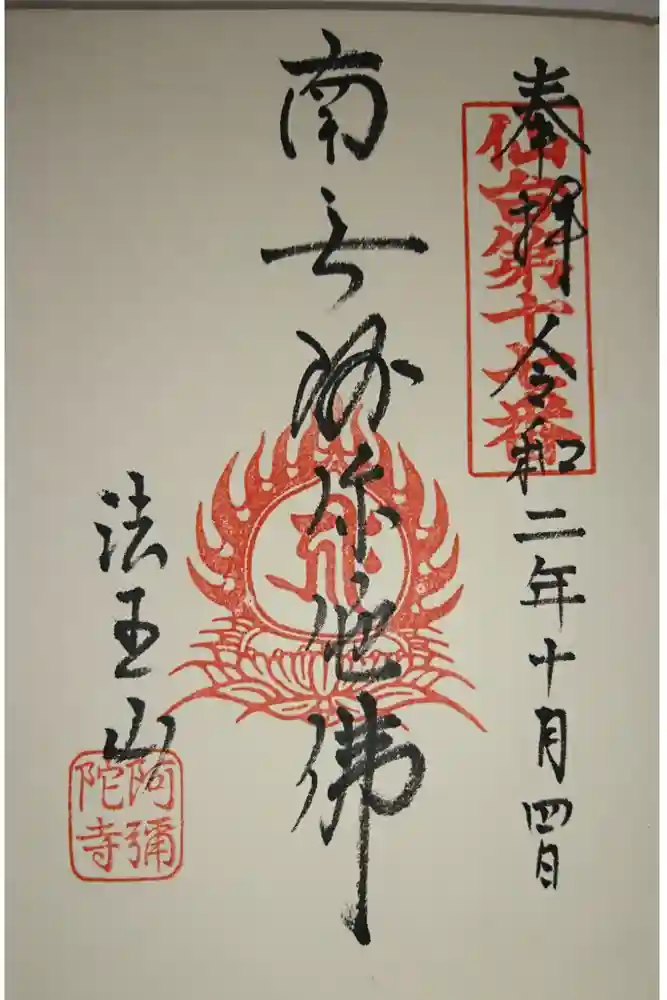 奉拝 令和二年十月四日
仙台第十七番
南无阿弥陀佛
法王山
阿彌陀寺